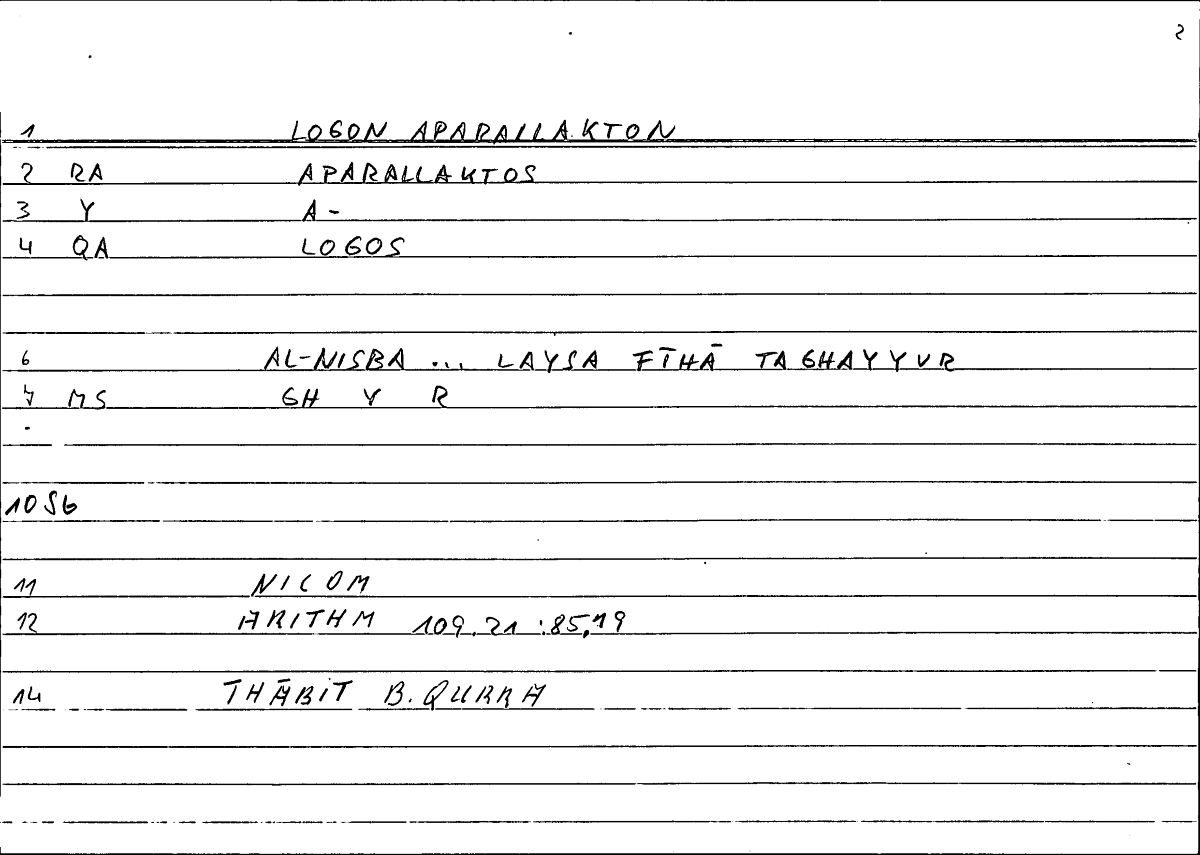 2
1 LOGON APARALLAKTON
2 RA APARALLAKTOS
3 Y A-
4 QA LOGOS
6 AL-NISBA ... LAYSA FĪHĀ TAGHAYYUR
7 MS GH Y R
10 SG
11 NICOM
12 ARITHM 109.21 :85,19
14 THĀBIT B. QURRA